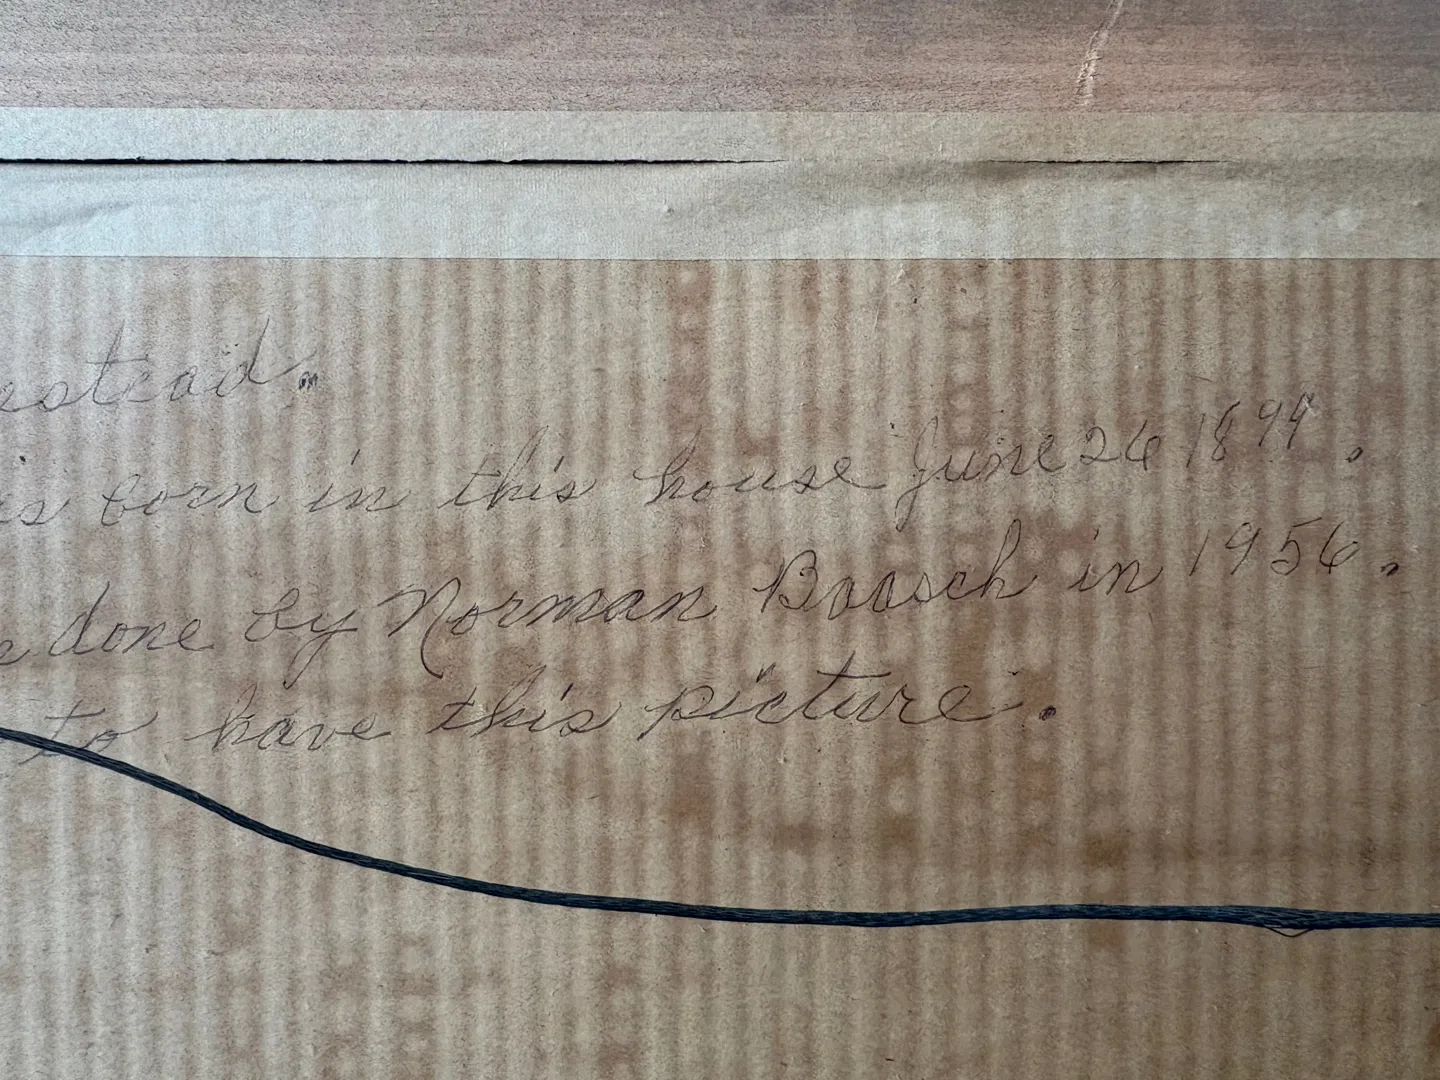 estead.
is born in this house June 26 1899.
e done by Norman Baasch in 1956.
to have this picture.